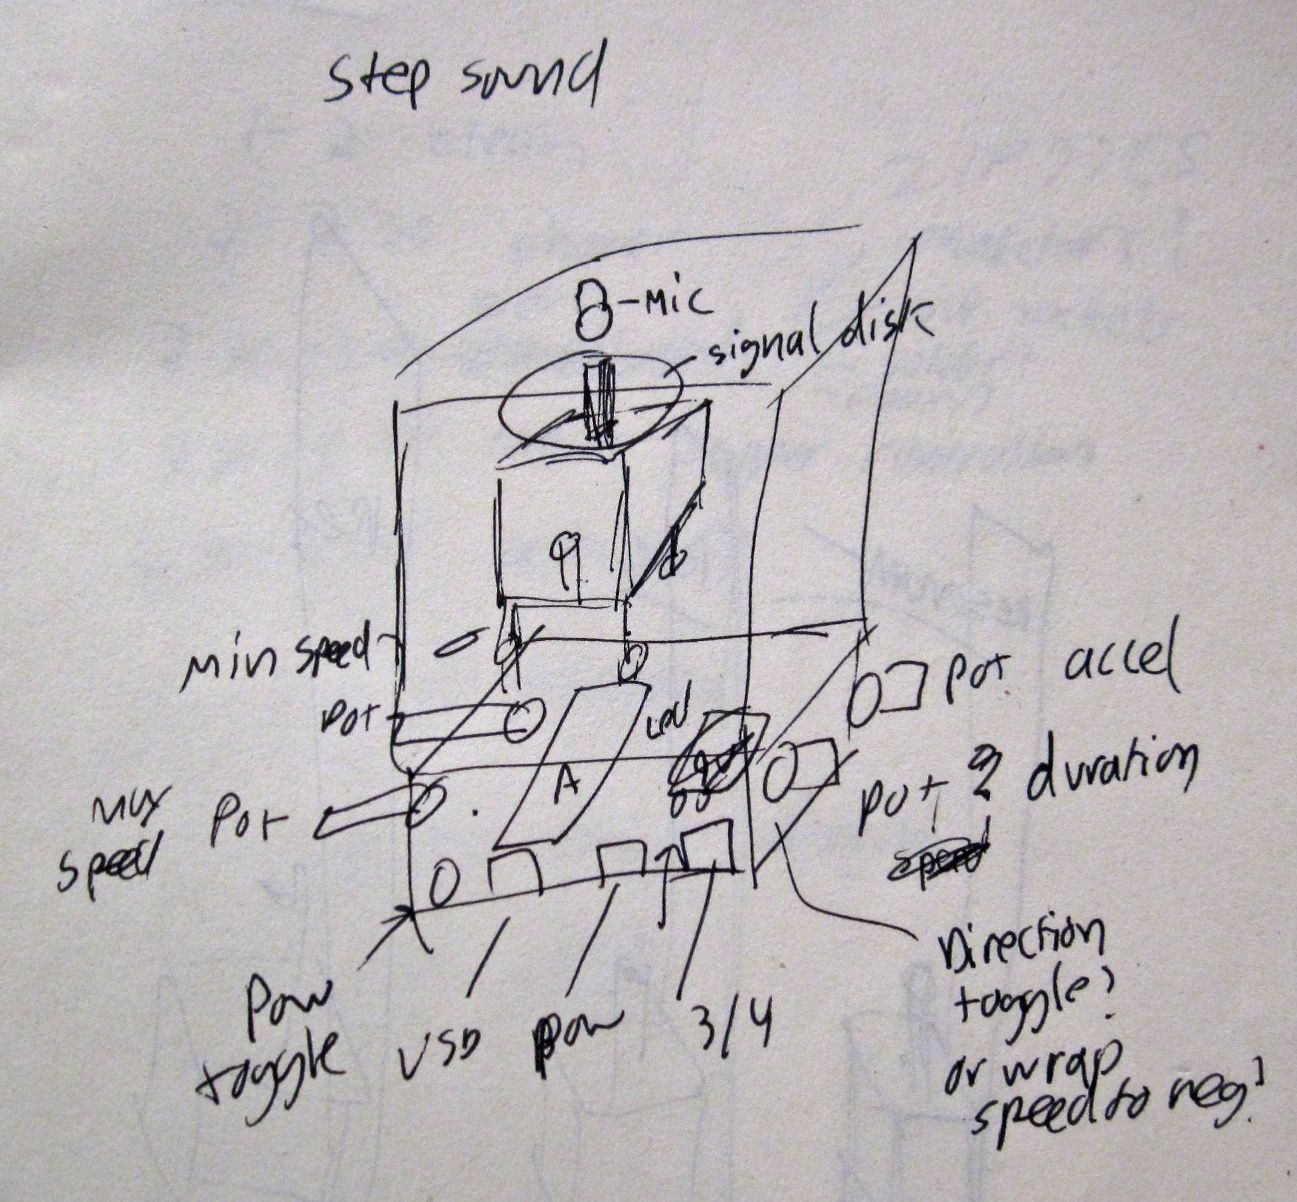 Step sound
8-mic
signal disk
Min speed
Pot
Pot accel
max
speed
Pot
A
pot 2 duration
speed
Pow
toggle
USB
pow
3/4
Direction
toggle?
or wrap
speed to neg?